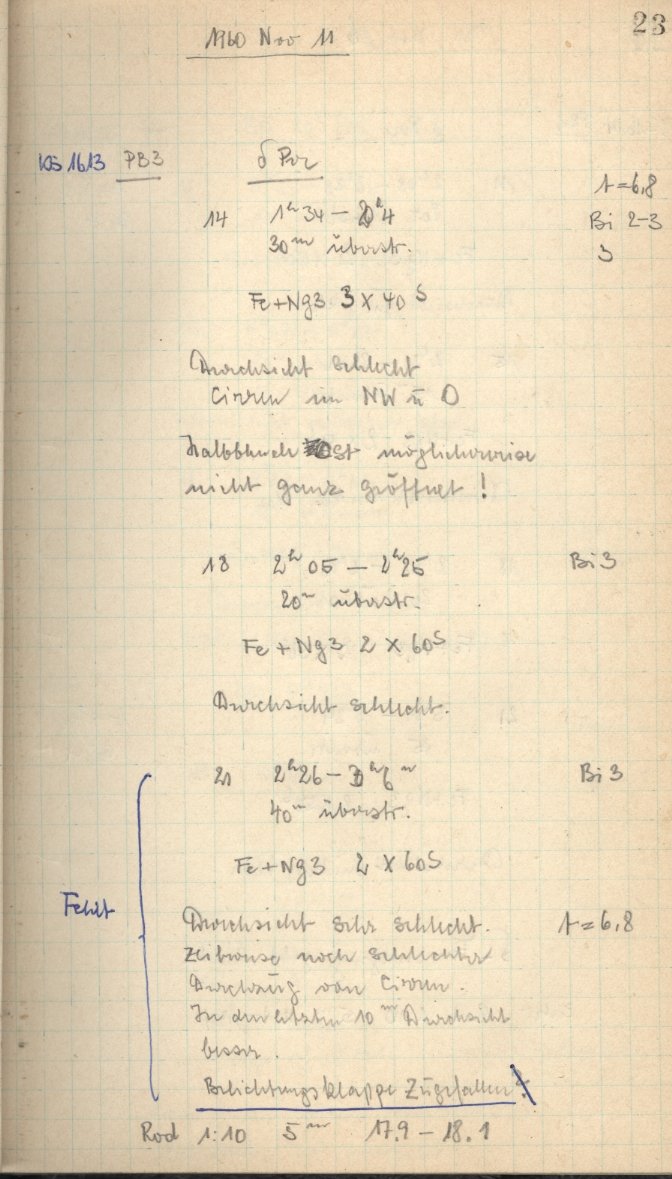 23
1960 Nov 11
KS 1613 PB3 δ Per
t=6,8
14 1ʰ34 – 2ʰ4 Bi 2-3
30ᵐ überstr. 3
Fe+Ng3 3 x 40ˢ
Durchsicht schlecht
Cirren im NW u O
Ost möglicherweise
nicht ganz geöffnet !
18 2ʰ05 – 2ʰ25 Bi 3
20ᵐ überstr.
Fe+Ng3 2 x 60ˢ
Durchsicht schlecht.
21 2ʰ26 – 3ʰ6ᵐ Bi 3
40ᵐ überstr.
Fe+Ng3 2 x 60ˢ
Fehlt
Durchsicht sehr schlecht. t=6,8
Zeitweise noch schlechter
Durchzug von Cirren.
In den letzten 10ᵐ Durchsicht
besser.
Belichtungsklappe Zugefallen?
Rod 1:10 5ᵐ 17.9 – 18.1